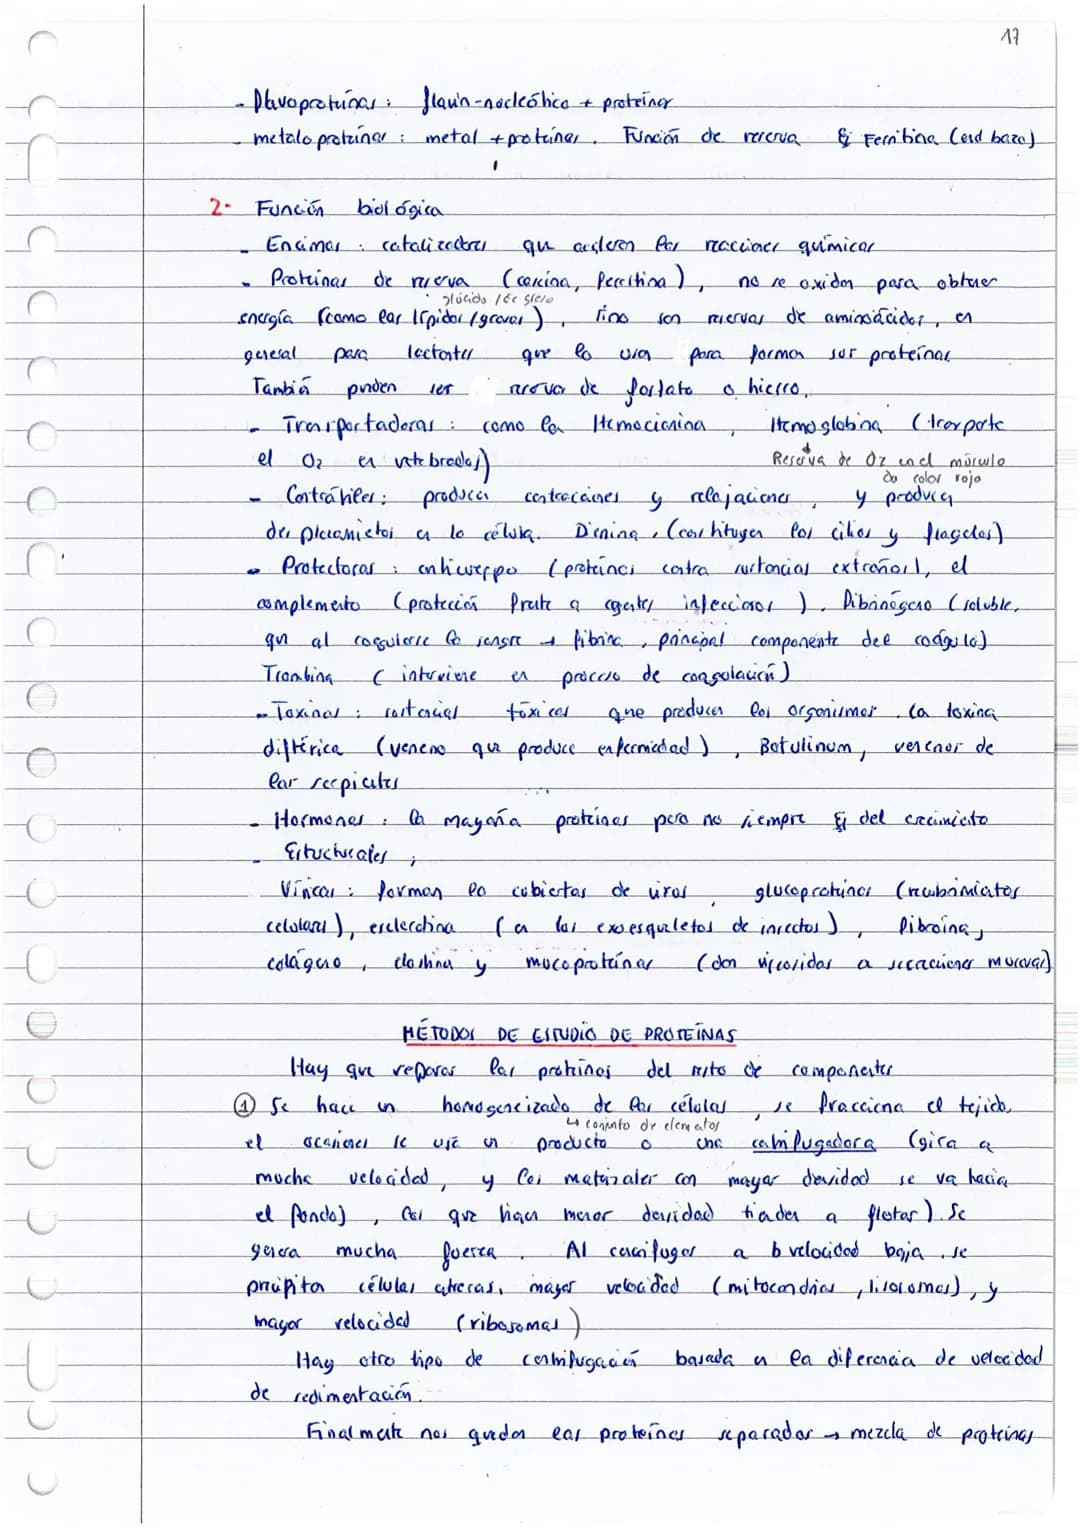 17
- Flavoproteínas: flavín-nucleótico + proteínas
- metaloproteínas: metal + proteínas. Función de reserva Ej Ferritina (en el bazo)
2- Función biológica
- Encimas: catalizadores que aceleran las reacciones químicas
- Proteínas de reserva (caseína, ferritina), no se oxidan para obtener
glúcido
energía (como los lípidos/grasas), sino son reservas de aminoácidos, en
general para lactantes que lo usan para formar sus proteínas
También pueden ser reserva de fosfato o hierro.
- Transportadoras: como la Hemocianina, Hemoglobina (transporte
el O2 en vertebrados)
Reserva de O2 en el músculo
da color rojo
- Contráctiles: producen contracciones y relajaciones, y producen
desplazamientos en la célula. Dineina, (constituyen los cilios y flagelos)
- Protectoras: anticuerpo (proteínas contra sustancias extrañas), el
complemento (protección frente a agentes infecciosos). Fibrinógeno (soluble,
que al coagularse la sangre → fibrina, principal componente del coágulo)
Trombina (interviene en proceso de coagulación)
- Toxinas: sustancias tóxicas que producen los organismos. La toxina
diftérica (veneno que produce enfermedad), Botulinum, venenos de
las serpientes
- Hormonas: la mayoría proteínas pero no siempre Ej del crecimiento
- Estructurales:
Víricas: forman la cubiertas de virus, glucoproteínas (recubrimientos
celulares), esclerotina (en los exoesqueletos de insectos), fibroína,
colágeno, elastina y mucoproteínas (dan viscosidas a secreciones mucosas)
MÉTODOS DE ESTUDIO DE PROTEÍNAS
Hay que separar las proteínas del resto de componentes
① Se hace un homogeneizado de las células, se fracciona el tejido,
↳ conjunto de elementos
el ocasiones se usa un producto o una centrifugadora (gira a
mucha velocidad, y los materiales con mayor densidad se va hacia
el fondo), los que tienen menor densidad tienden a flotar). Se
genera mucha fuerza. Al centrifugar a b velocidad baja se
precipitan células enteras, mayor velocidad (mitocondrias, lisosomas), y
mayor velocidad (ribosomas)
Hay otro tipo de centrifugación basada en la diferencia de velocidad
de sedimentación.
Finalmente nos quedan las proteínas separadas → mezcla de proteínas